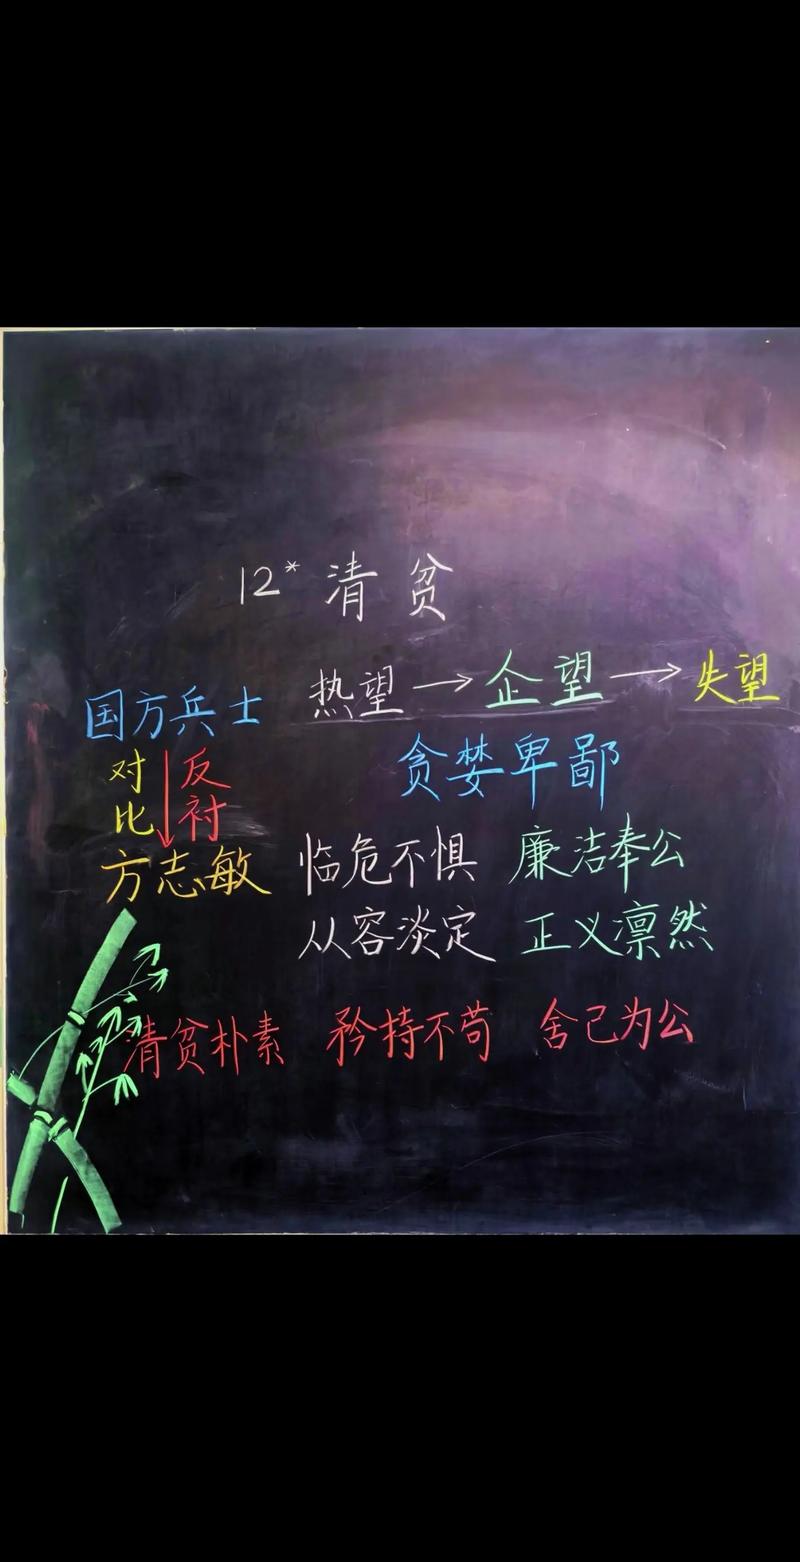 12* 清贫
国方兵士 热望→企望→失望
贪婪卑鄙
对比 反衬
方志敏 临危不惧 廉洁奉公
从容淡定 正义凛然
清贫朴素 矜持不苟 舍己为公